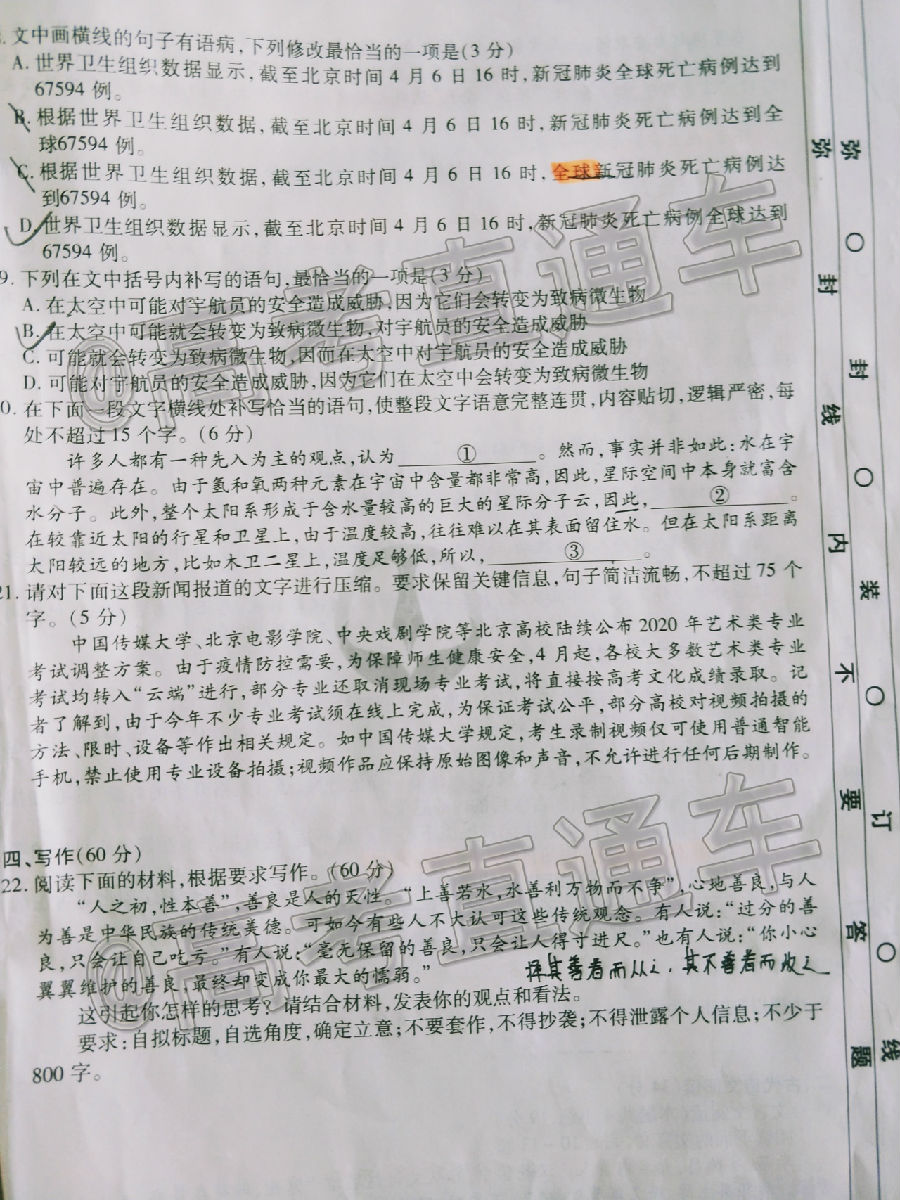 . 文中画横线的句子有语病,下列修改最恰当的一项是(3 分)
A. 世界卫生组织数据显示,截至北京时间 4 月 6 日 16 时,新冠肺炎全球死亡病例达到
67594 例。
B. 根据世界卫生组织数据,截至北京时间 4 月 6 日 16 时,新冠肺炎死亡病例达到全
球67594 例。
C. 根据世界卫生组织数据,截至北京时间 4 月 6 日 16 时,全球新冠肺炎死亡病例达
到67594 例。
D. 世界卫生组织数据显示,截至北京时间 4 月 6 日 16 时,新冠肺炎死亡病例全球达到
67594 例。
9. 下列在文中括号内补写的语句,最恰当的一项是(3 分)
A. 在太空中可能对宇航员的安全造成威胁,因为它们会转变为致病微生物
B. 在太空中可能就会转变为致病微生物,对宇航员的安全造成威胁
C. 可能就会转变为致病微生物,因而在太空中对宇航员的安全造成威胁
D. 可能对宇航员的安全造成威胁,因为它们在太空中会转变为致病微生物
0. 在下面一段文字横线处补写恰当的语句,使整段文字语意完整连贯,内容贴切,逻辑严密,每
处不超过 15 个字。(6 分)
许多人都有一种先入为主的观点,认为 ① 。然而,事实并非如此:水在宇
宙中普遍存在。由于氢和氧两种元素在宇宙中含量都非常高,因此,星际空间中本身就富含
水分子。此外,整个太阳系形成于含水量较高的巨大的星际分子云,因此, ② 。
在较靠近太阳的行星和卫星上,由于温度较高,往往难以在其表面留住水。但在太阳系距离
太阳较远的地方,比如木卫二星上,温度足够低,所以, ③ 。
21. 请对下面这段新闻报道的文字进行压缩。要求保留关键信息,句子简洁流畅,不超过 75 个
字。(5 分)
中国传媒大学、北京电影学院、中央戏剧学院等北京高校陆续公布 2020 年艺术类专业
考试调整方案。由于疫情防控需要,为保障师生健康安全,4 月起,各校大多数艺术类专业
考试均转入“云端”进行,部分专业还取消现场专业考试,将直接按高考文化成绩录取。记
者了解到,由于今年不少专业考试须在线上完成,为保证考试公平,部分高校对视频拍摄的
方法、限时、设备等作出相关规定。如中国传媒大学规定,考生录制视频仅可使用普通智能
手机,禁止使用专业设备拍摄;视频作品应保持原始图像和声音,不允许进行任何后期制作。
四、写作(60 分)
22. 阅读下面的材料,根据要求写作。(60 分)
“人之初,性本善”,善良是人的天性。“上善若水,水善利万物而不争”,心地善良,与人
为善是中华民族的传统美德。可如今有些人不大认可这些传统观念。有人说:“过分的善
良,只会让自己吃亏。”有人说:“毫无保留的善良,只会让人得寸进尺。”也有人说:“你小心
翼翼维护的善良,最终却变成你最大的懦弱。”
择其善者而从之,其不善者而改之
这引起你怎样的思考?请结合材料,发表你的观点和看法。
要求:自拟标题,自选角度,确定立意;不要套作,不得抄袭;不得泄露个人信息;不少于
800 字。
弥 ○ 封 ○ 装 ○ 订 ○ 线
弥 封 线 内 不 要 答 题
@高考直通车
@高考直通车